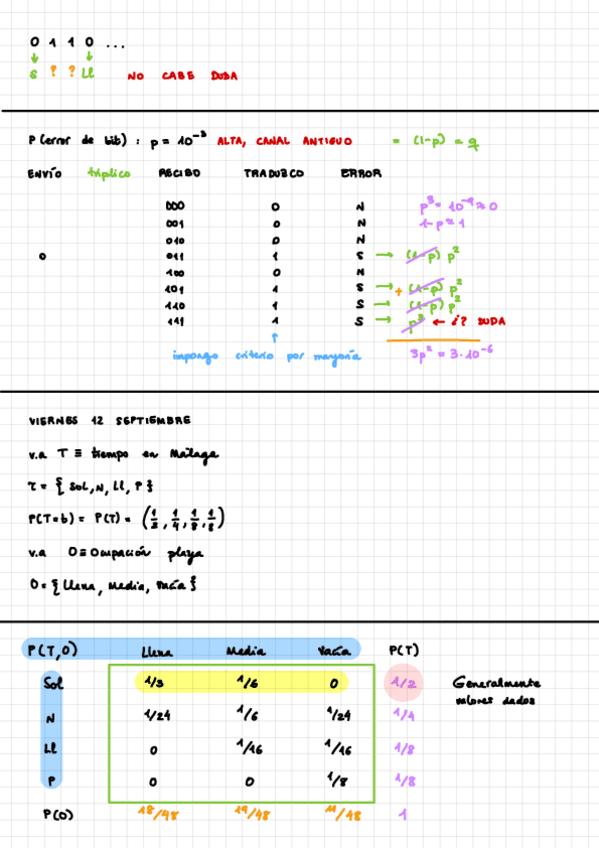 0 1 1 0 ...
↓ ↓
S ? ? Ll NO CABE DUDA
P(error de bit) : p = 10⁻³ ALTA, CANAL ANTIGUO = (1-p) = q
ENVÍO triplico RECIBO TRADUZCO ERROR
000 0 N p³ = 10⁻⁹ ≈ 0
001 0 N 1-p ≈ 1
010 0 N
0 011 1 S → (1-p) p²
100 0 N
101 1 S → + (1-p) p²
110 1 S → (1-p) p²
111 1 S → p³ ← ¿? DUDA
↑
impongo criterio por mayoría 3p² = 3·10⁻⁶
VIERNES 12 SEPTIEMBRE
v.a T ≡ tiempo en Málaga
τ = { Sol, N, Ll, P }
P(T=t) = P(T) = (1/2, 1/4, 1/8, 1/8)
v.a O ≡ Ocupación playa
O = { Llena, Media, Vacía }
P(T,O) Llena Media Vacía P(T)
Sol 1/3 1/6 0 1/2 Generalmente
valores dados
N 1/24 1/6 1/24 1/4
Ll 0 1/16 1/16 1/8
P 0 0 1/8 1/8
P(O) 18/48 19/48 11/48 1